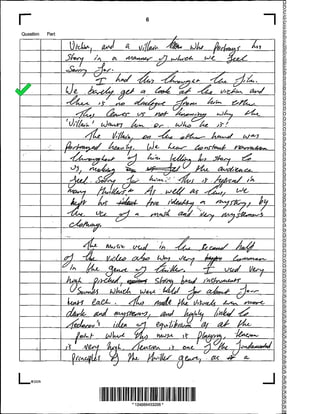 6
Question Part
Victim, and a villain who portrays his
story in a manner of which we feel
sorry for.
I had this throughout the film.
We barely get a look at the victim and
there is no dialogue from him either.
This leaves us not knowing why the
'Villain' wants him or who he is!
The Villain, on the other hand was
portrayed heavily. We hear constant narration
throughout of him telling his story to
us, making the audience
feel sorry for him. This is typical in
many thrillers. As well as this, we
kept his true identity a mystery, by
the use of a mask and very mysterious
clothing.
The music used in the second half
of the video also was very common
in the genre of thriller. I used very
high pitched, string based instruments
sounds which were held for about four
beats each. This made the visuals even more
dark and mysterious, and highly linked to
Todorov's idea of equilibrium as at the
point where this music is playing, tension
is very high. Tension is one of the fundamental
principles of the thriller genre, as a